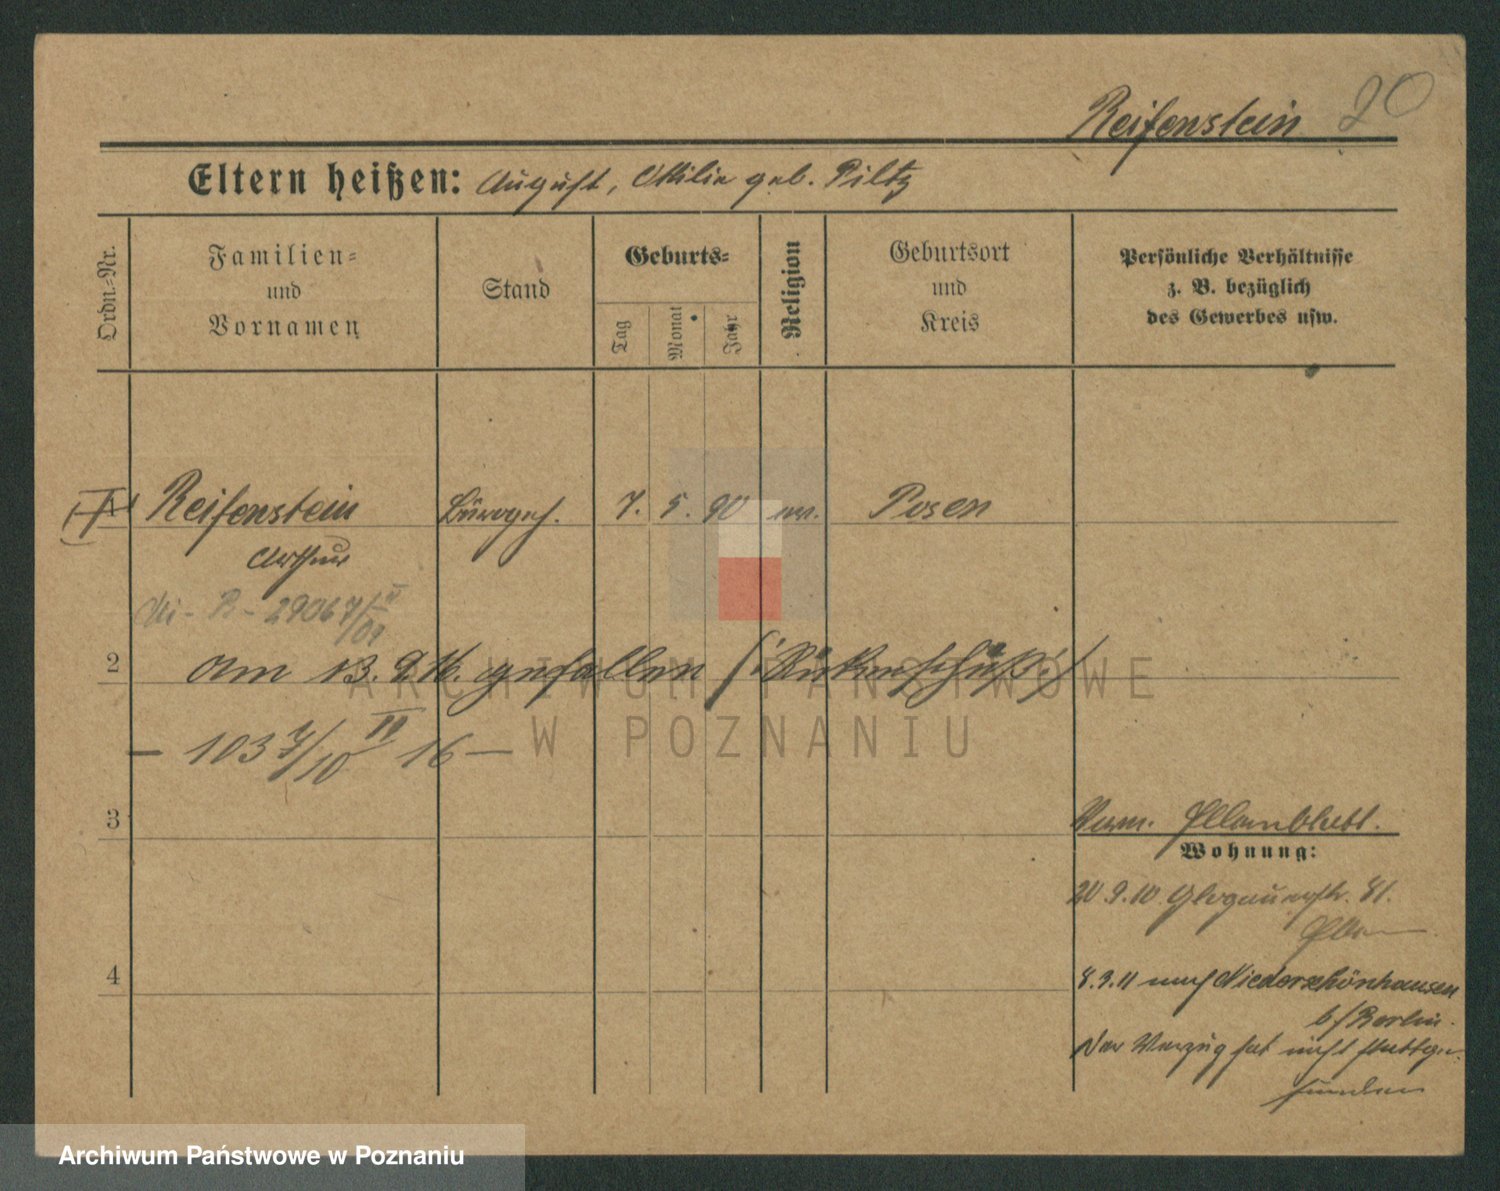 Reifenstein 20
Eltern heißen: August, Ottilie geb. Piltz
Ordn.-Nr.
Familien- und Vornamen
Stand
Geburts-
Tag
Monat
Jahr
Religion
Geburtsort und Kreis
Persönliche Verhältnisse z. B. bezüglich des Gewerbes usw.
1 Reifenstein Bürogeh. 7. 5. 90 ev. Posen
Arthur
2 am 13. 9. 16. gefallen (: Rückenschuß :)
— 103 7/10 VI 16 —
3
Verm. Stammblatt.
Wohnung:
20.9.10 Glogauerstr. 81.
4
8.3.11 nach Niederschönhausen
b/Berlin.
Der Verzug hat nicht stattge-
funden
ARCHIWUM PAŃSTWOWE
W POZNANIU
Archiwum Państwowe w Poznaniu